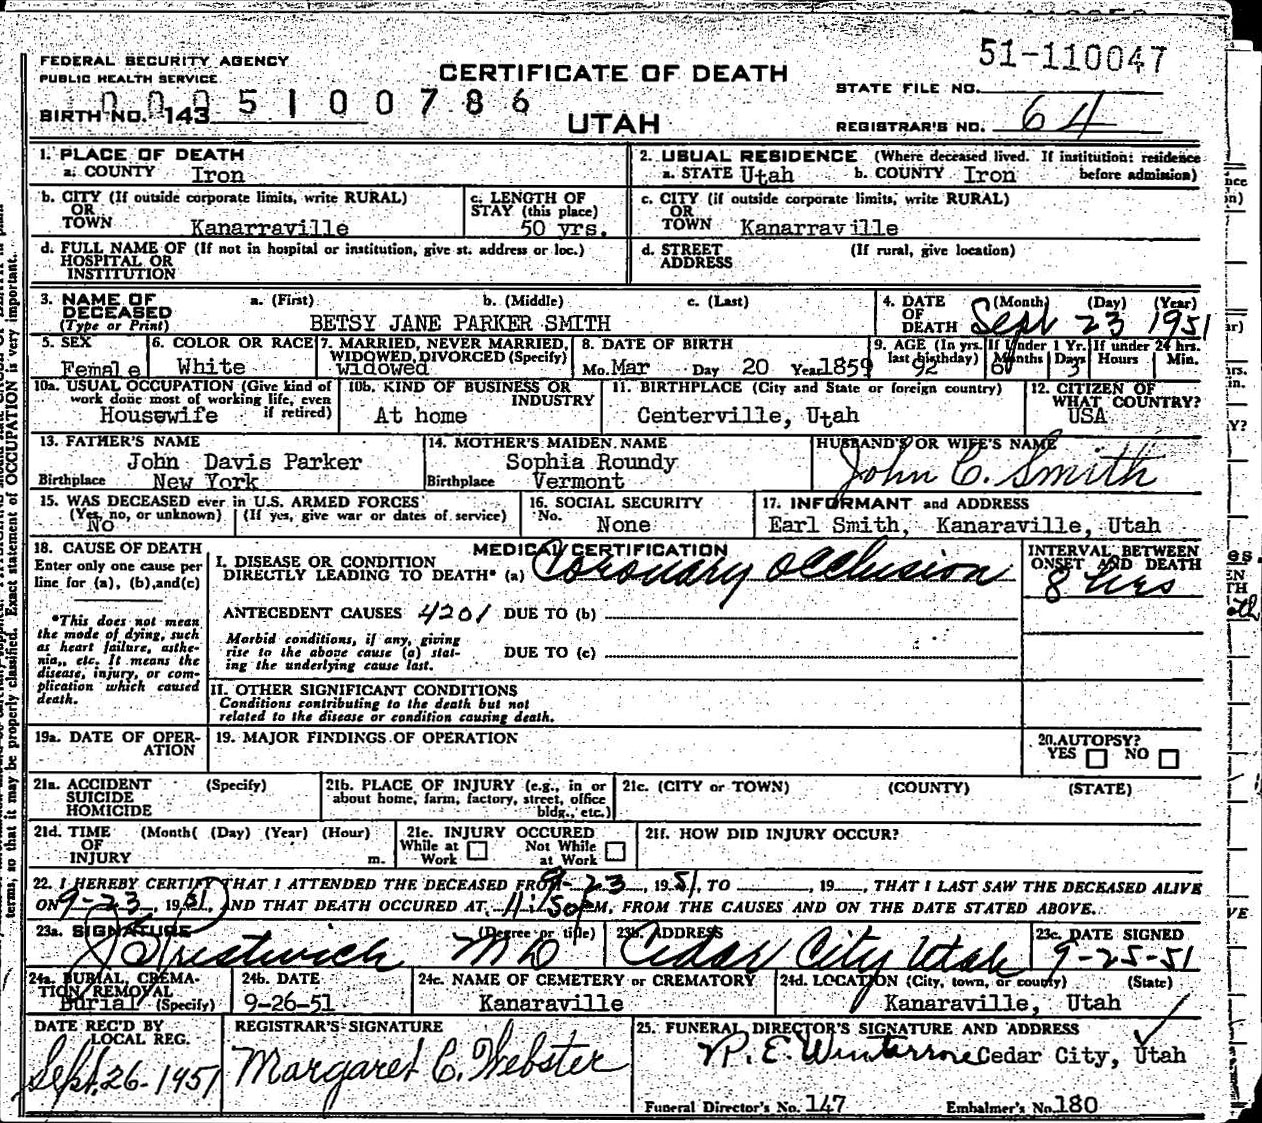 51-110047
FEDERAL SECURITY AGENCY
PUBLIC HEALTH SERVICE
CERTIFICATE OF DEATH
STATE FILE NO.
0005100786
BIRTH NO. 143
UTAH
REGISTRAR'S NO. 64
1. PLACE OF DEATH
a. COUNTY Iron
2. USUAL RESIDENCE (Where deceased lived. If institution: residence before admission)
a. STATE Utah b. COUNTY Iron
b. CITY (If outside corporate limits, write RURAL)
OR
TOWN Kanarraville
c. LENGTH OF
STAY (this place)
50 yrs.
c. CITY (if outside corporate limits, write RURAL)
OR
TOWN Kanarraville
d. FULL NAME OF (If not in hospital or institution, give st. address or loc.)
HOSPITAL OR
INSTITUTION
d. STREET (If rural, give location)
ADDRESS
3. NAME OF DECEASED
(Type or Print)
a. (First) b. (Middle) c. (Last)
BETSY JANE PARKER SMITH
4. DATE OF DEATH (Month) (Day) (Year)
Sept 23 1951
5. SEX
Female
6. COLOR OR RACE
White
7. MARRIED, NEVER MARRIED,
WIDOWED, DIVORCED (Specify)
widowed
8. DATE OF BIRTH
Mo. Mar Day 20 Year 1859
9. AGE (In yrs. last birthday) 92
If Under 1 Yr. Months 6 Days 3
If under 24 hrs. Hours Min.
10a. USUAL OCCUPATION (Give kind of
work done most of working life, even
if retired)
Housewife
10b. KIND OF BUSINESS OR
INDUSTRY
At home
11. BIRTHPLACE (City and State or foreign country)
Centerville, Utah
12. CITIZEN OF
WHAT COUNTRY?
USA
13. FATHER'S NAME
John Davis Parker
Birthplace New York
14. MOTHER'S MAIDEN NAME
Sophia Roundy
Birthplace Vermont
HUSBAND'S OR WIFE'S NAME
John C. Smith
15. WAS DECEASED ever in U.S. ARMED FORCES
(Yes, no, or unknown) (If yes, give war or dates of service)
No
16. SOCIAL SECURITY
No. None
17. INFORMANT and ADDRESS
Earl Smith, Kanaraville, Utah
18. CAUSE OF DEATH
Enter only one cause per
line for (a), (b),and(c)
*This does not mean
the mode of dying, such
as heart failure, asthe-
nia,, etc. It means the
disease, injury, or com-
plication which caused
death.
MEDICAL CERTIFICATION
I. DISEASE OR CONDITION
DIRECTLY LEADING TO DEATH* (a) Coronary occlusion
INTERVAL BETWEEN
ONSET AND DEATH
8 hrs
ANTECEDENT CAUSES 4201 DUE TO (b)
Morbid conditions, if any, giving
rise to the above cause (a) stat-
ing the underlying cause last.
DUE TO (c)
II. OTHER SIGNIFICANT CONDITIONS
Conditions contributing to the death but not
related to the disease or condition causing death.
19a. DATE OF OPER-
ATION
19. MAJOR FINDINGS OF OPERATION
20. AUTOPSY?
YES NO
21a. ACCIDENT (Specify)
SUICIDE
HOMICIDE
21b. PLACE OF INJURY (e.g., in or
about home, farm, factory, street, office
bldg., etc.)
21c. (CITY or TOWN) (COUNTY) (STATE)
21d. TIME (Month( (Day) (Year) (Hour)
OF
INJURY m.
21e. INJURY OCCURED
While at Work Not While at Work
21f. HOW DID INJURY OCCUR?
22. I HEREBY CERTIFY THAT I ATTENDED THE DECEASED FROM 9-23, 1951, TO , 19 , THAT I LAST SAW THE DECEASED ALIVE
ON 9-23, 1951, AND THAT DEATH OCCURED AT 11:50 P M, FROM THE CAUSES AND ON THE DATE STATED ABOVE.
23a. SIGNATURE (Degree or title)
Prestwich MD
23b. ADDRESS
Cedar City Utah
23c. DATE SIGNED
9-25-51
24a. BURIAL, CREMA-
TION, REMOVAL
Burial (Specify)
24b. DATE
9-26-51
24c. NAME OF CEMETERY or CREMATORY
Kanaraville
24d. LOCATION (City, town, or county) (State)
Kanaraville, Utah
DATE REC'D BY
LOCAL REG.
Sept. 26-1951
REGISTRAR'S SIGNATURE
Margaret C. Webster
25. FUNERAL DIRECTOR'S SIGNATURE AND ADDRESS
Cedar City, Utah
Funeral Director's No. 147 Embalmer's No. 180
terms, so that it may be properly classified. Exact statement of OCCUPATION is very important.